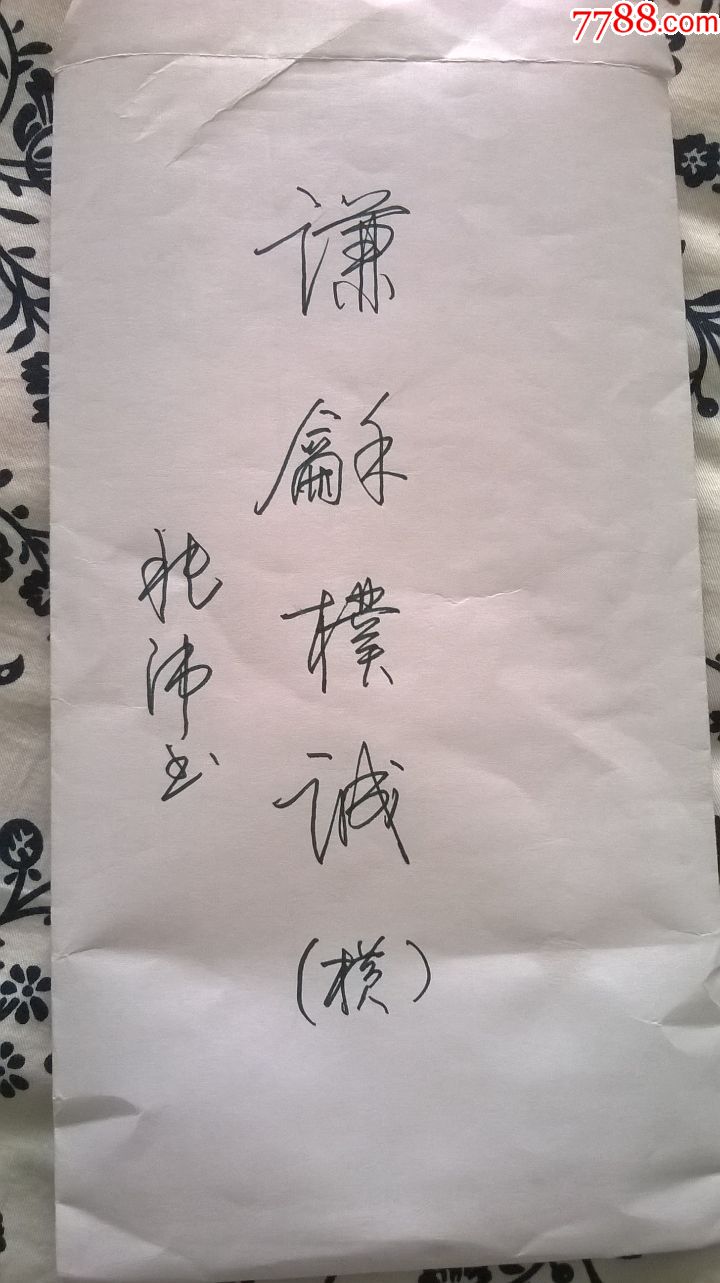 7788.com
谦龢樸诚
(横)
张沛书